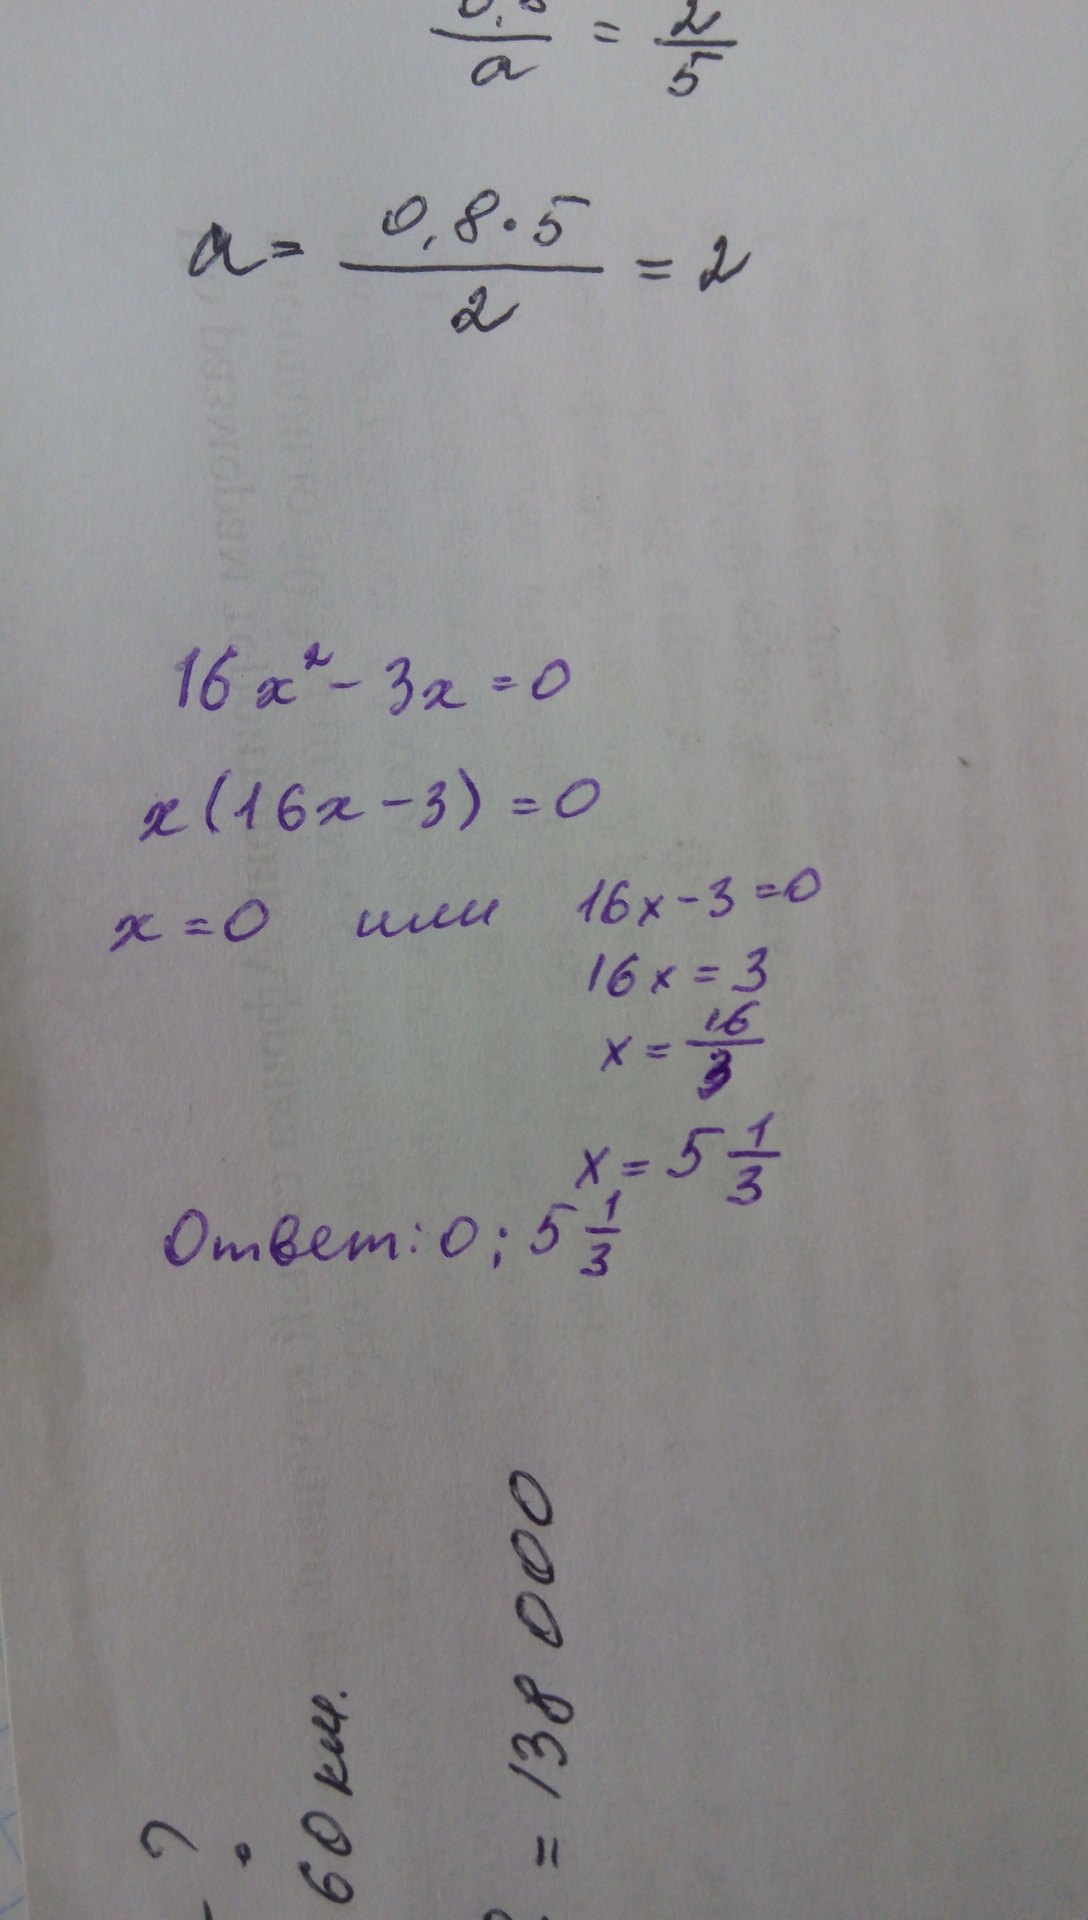 0,8/a = 2/5
a = 0,8·5/2 = 2
16x² - 3x = 0
x(16x - 3) = 0
x = 0 или 16x - 3 = 0
16x = 3
x = 16/3
x = 5 1/3
Ответ: 0; 5 1/3
?
60 км.
= 138 000